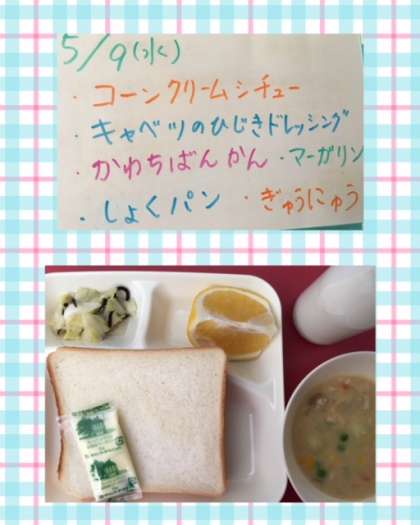 5/9(水)
・コーンクリームシチュー
・キャベツのひじきドレッシング
・かわちばんかん ・マーガリン
・しょくパン ・ぎゅうにゅう